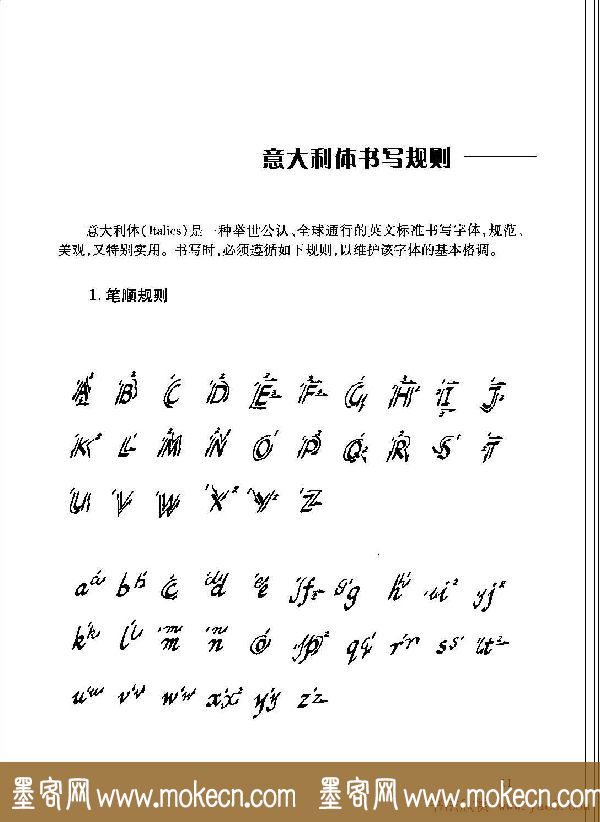 意大利体书写规则
意大利体(Italics)是一种举世公认、全球通行的英文标准书写字体,规范、
美观,又特别实用。书写时,必须遵循如下规则,以维护该字体的基本格调。
1. 笔顺规则
A B C D E F G H I J
K L M N O P Q R S T
U V W X Y Z
a b c d e f g h i j
k l m n o p q r s t
u v w x y z
墨客网 www.mokecn.com 墨客网 www.mokecn.com